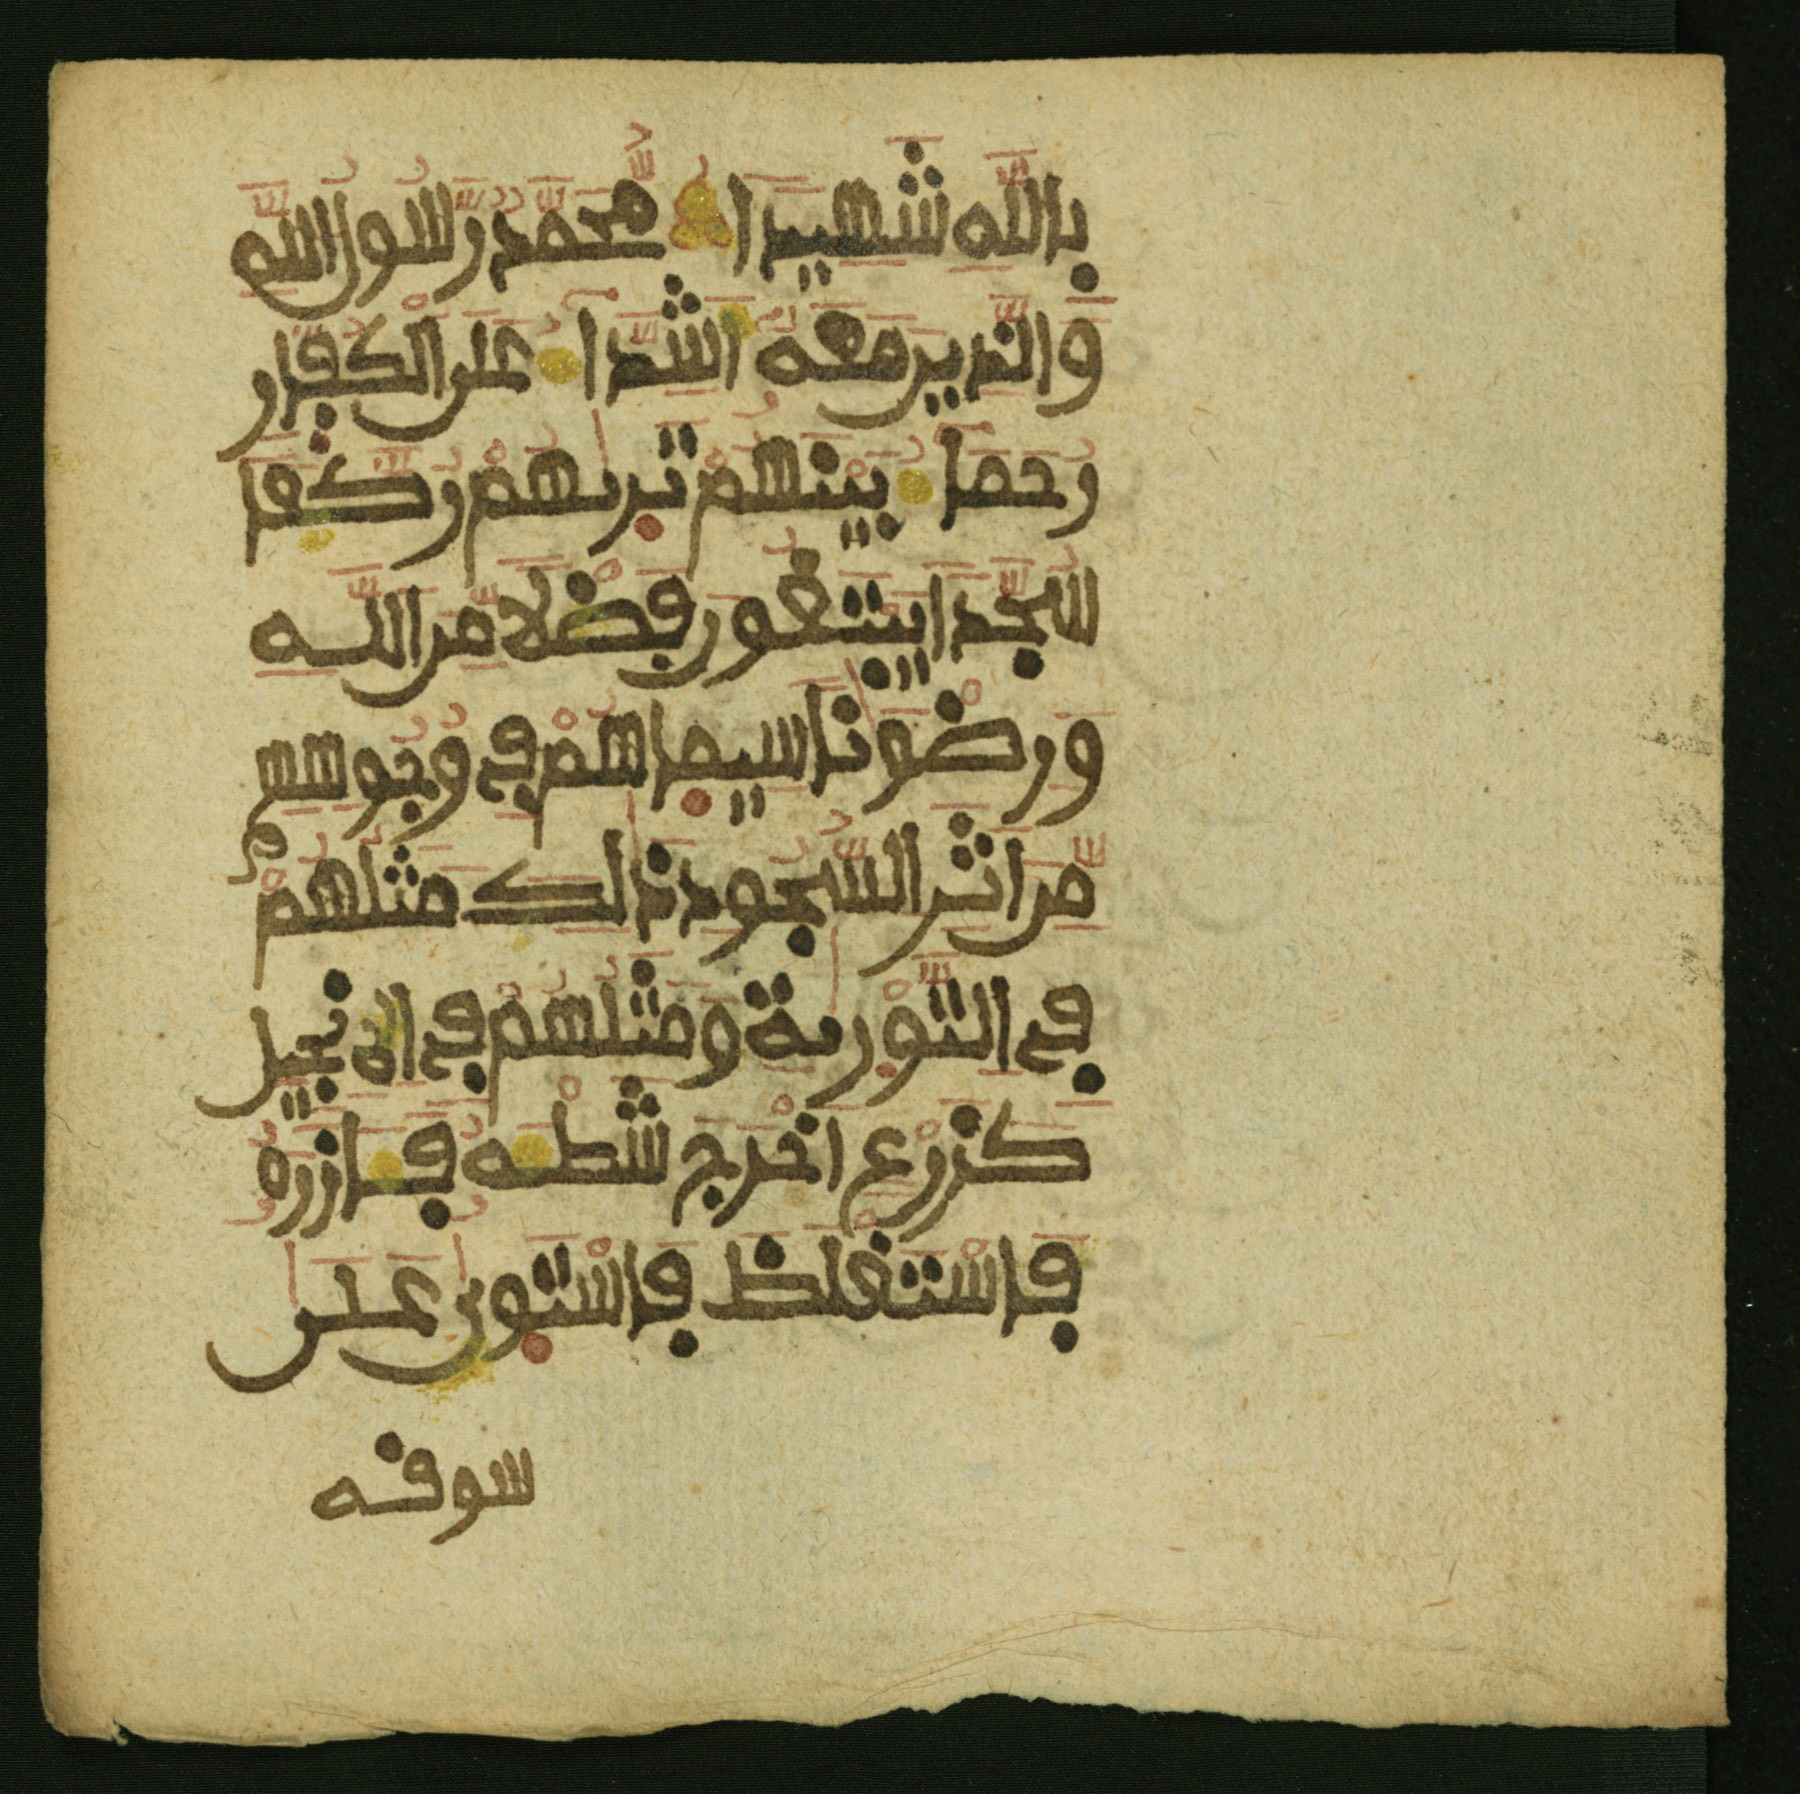 بالله شهيدا محمد رسول الله
والذين معه اشدا على الكفار
رحما بينهم تريهم ركعا
سجدا يبتغون فضلا من الله
ورضونا سيماهم في وجوههم
من اثر السجود ذلك مثلهم
في التورية ومثلهم في الانجيل
كزرع اخرج شطه فازره
فاستغلظ فاستوى على
سوقه